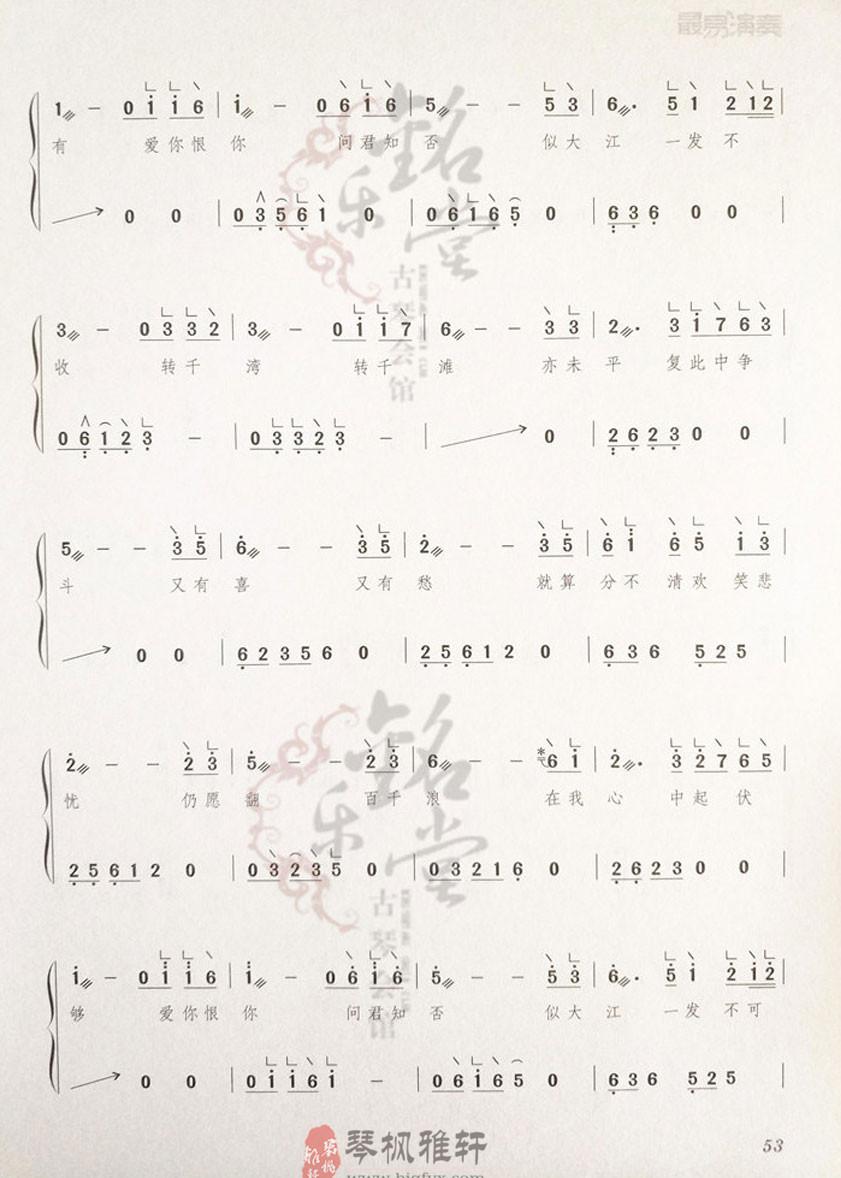 最易演奏
1 - 0 i i 6 | i - 0 6 i 6 | 5 - - 5 3 | 6 · 5 1 2 1 2 |
有 爱你恨 你 问君知 否 似大 江 一发 不
0 0 | 0 3 5 6 1 0 | 0 6 1 6 5 0 | 6 3 6 0 0 |
3 - 0 3 3 2 | 3 - 0 i i 7 | 6 - - 3 3 | 2 · 3 i 7 6 3
收 转千 湾 转千 滩 亦未 平 复此中争
0 6 1 2 3 - | 0 3 3 2 3 - | 0 | 2 6 2 3 0 0 |
5 - - 3 5 | 6 - - 3 5 | 2 - - 3 5 | 6 i 6 5 i 3 |
斗 又有 喜 又有 愁 就算 分不 清欢 笑悲
0 0 | 6 2 3 5 6 0 | 2 5 6 1 2 0 | 6 3 6 5 2 5 |
2 - - 2 3 | 5 - - 2 3 | 6 - - 6 i | 2 · 3 2 7 6 5
忧 仍愿 翻 百千 浪 在我 心 中起 伏
2 5 6 1 2 0 | 0 3 2 3 5 0 | 0 3 2 1 6 0 | 2 6 2 3 0 0 |
i - 0 i i 6 | i - 0 6 i 6 | 5 - - 5 3 | 6 · 5 i 2 i 2 |
够 爱你恨 你 问君知 否 似大 江 一发 不可
0 0 | 0 i i 6 i - | 0 6 i 6 5 0 | 6 3 6 5 2 5 |
铭乐堂
古琴会馆
铭乐堂
古琴会馆
琴枫雅轩
53